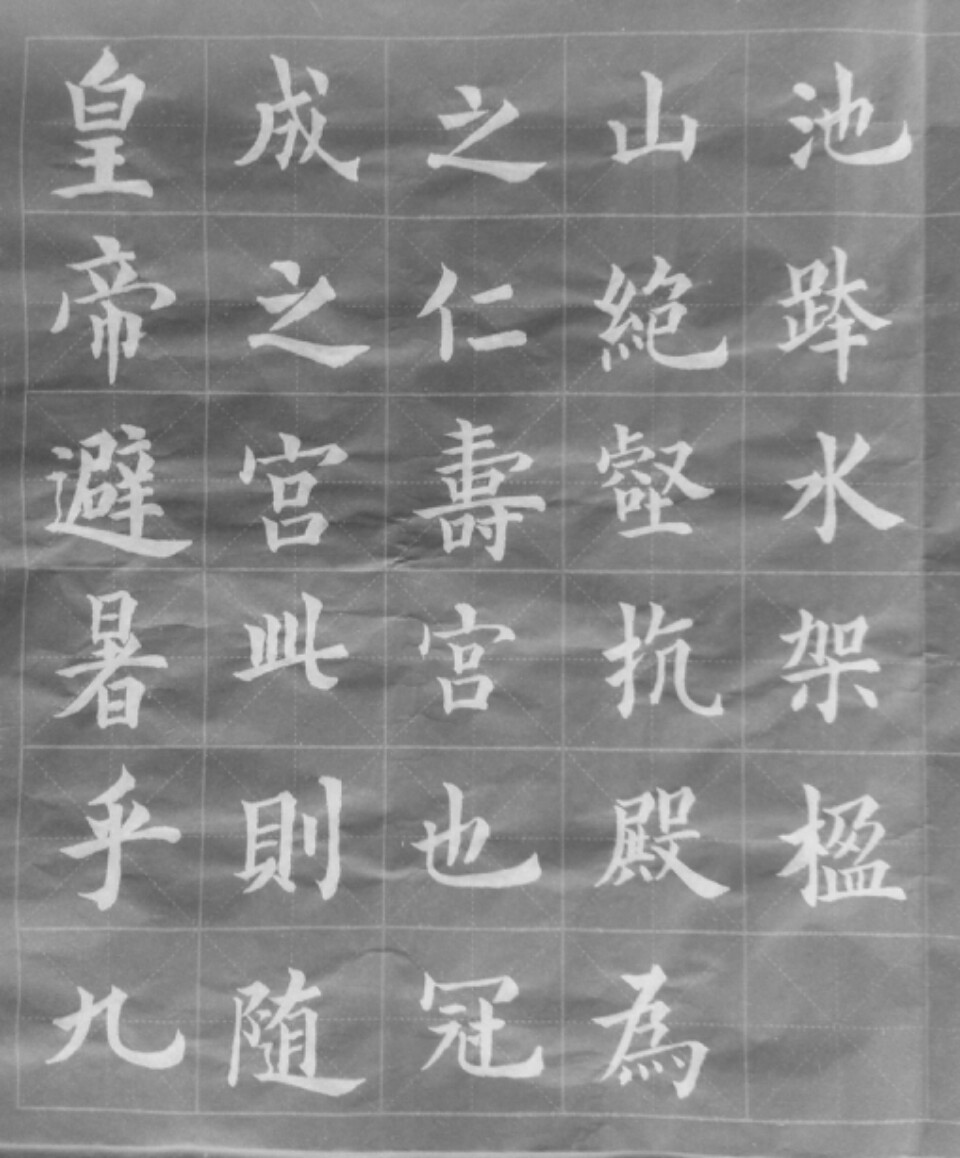 皇帝避暑乎九
成之宫此則随
之仁壽宫也冠
山絶壑抗殿為
池跨水架楹